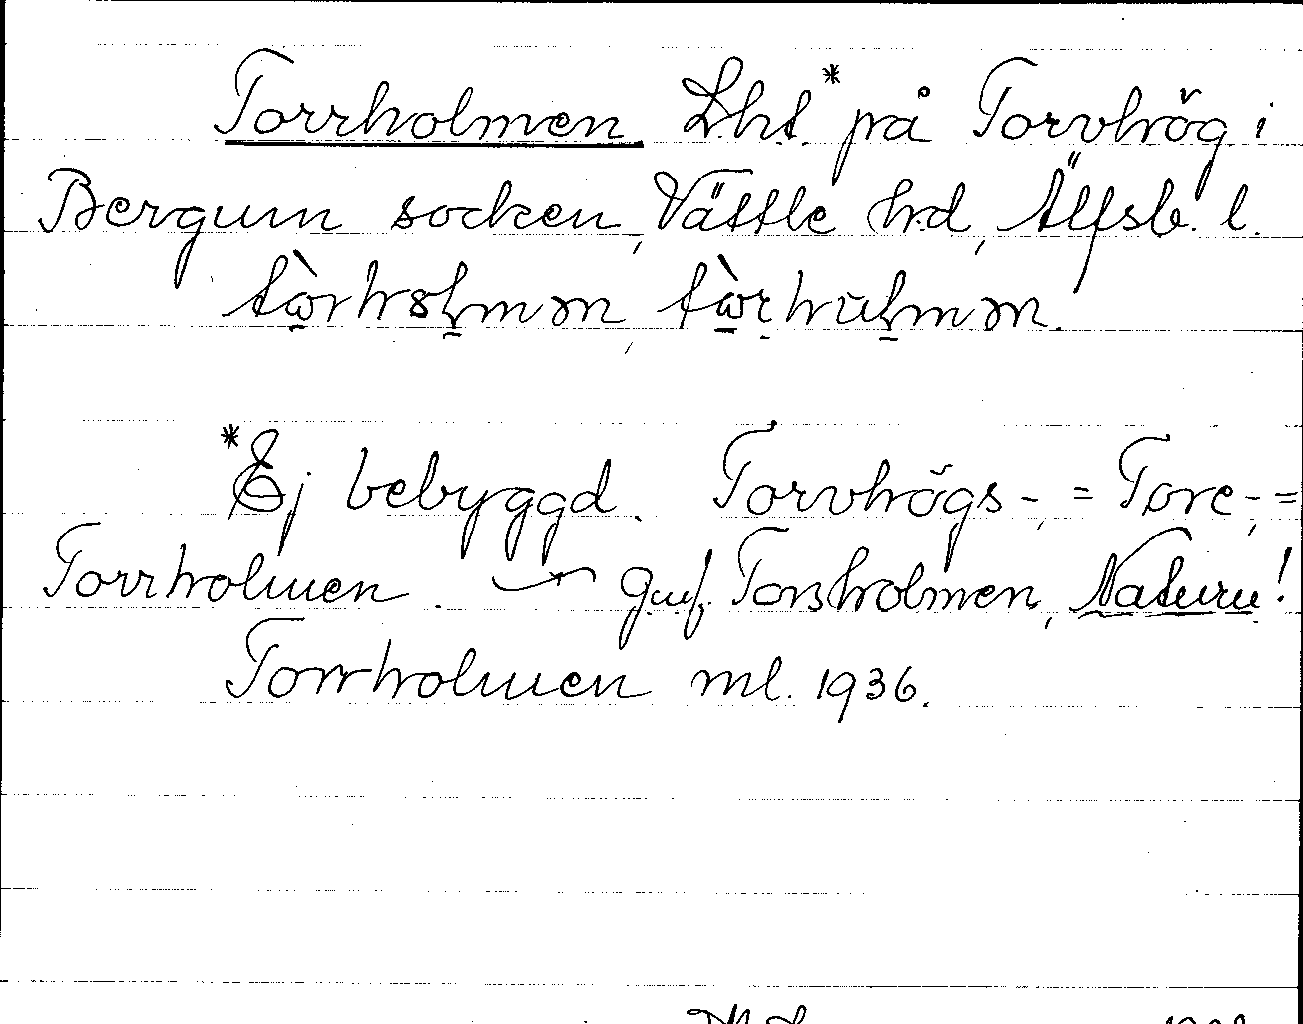 Torrholmen Lht.* på Torvhög i
Bergum socken, Vättle hd, Älfsb. l.
*Ej bebyggd. Torvhögs-, = Tore-, =
Torrholmen. Torsholmen, Naturn!
Torrholmen ml. 1936.